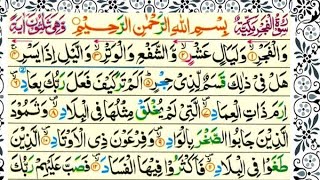 سُوْرَةُ الْفَجْرِ مَكِّيَّةٌ بِسْمِ اللهِ الرَّحْمٰنِ الرَّحِيْمِ وَهِيَ ثَلٰثُوْنَ اٰيَةً
وَالْفَجْرِ ۙ وَلَيَالٍ عَشْرٍ ۙ وَّالشَّفْعِ وَالْوَتْرِ ۙ وَالَّيْلِ اِذَا يَسْرِ ۚ
هَلْ فِيْ ذٰلِكَ قَسَمٌ لِّذِيْ حِجْرٍ ؕ اَلَمْ تَرَ كَيْفَ فَعَلَ رَبُّكَ بِعَادٍ
اِرَمَ ذَاتِ الْعِمَادِ الَّتِيْ لَمْ يُخْلَقْ مِثْلُهَا فِي الْبِلَادِ وَثَمُوْدَ
الَّذِيْنَ جَابُوا الصَّخْرَ بِالْوَادِ وَفِرْعَوْنَ ذِي الْاَوْتَادِ الَّذِيْنَ
طَغَوْا فِي الْبِلَادِ فَاَكْثَرُوْا فِيْهَا الْفَسَادَ فَصَبَّ عَلَيْهِمْ رَبُّكَ